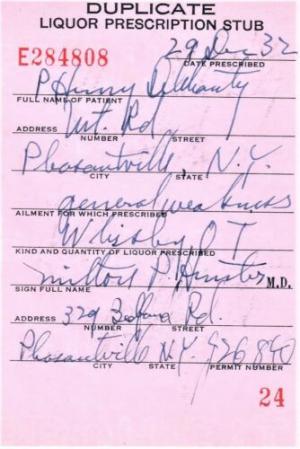 DUPLICATE
LIQUOR PRESCRIPTION STUB
E284808
29 Dec 32
DATE PRESCRIBED
P. Henry Delehanty
FULL NAME OF PATIENT
Rd
ADDRESS NUMBER STREET
Pleasantville, N.Y.
CITY STATE
general weakness
AILMENT FOR WHICH PRESCRIBED
Whisky O I
KIND AND QUANTITY OF LIQUOR PRESCRIBED
Milton P. M.D.
SIGN FULL NAME
329 Bedford Rd.
ADDRESS NUMBER STREET
Pleasantville N.Y. 926840
CITY STATE PERMIT NUMBER
24